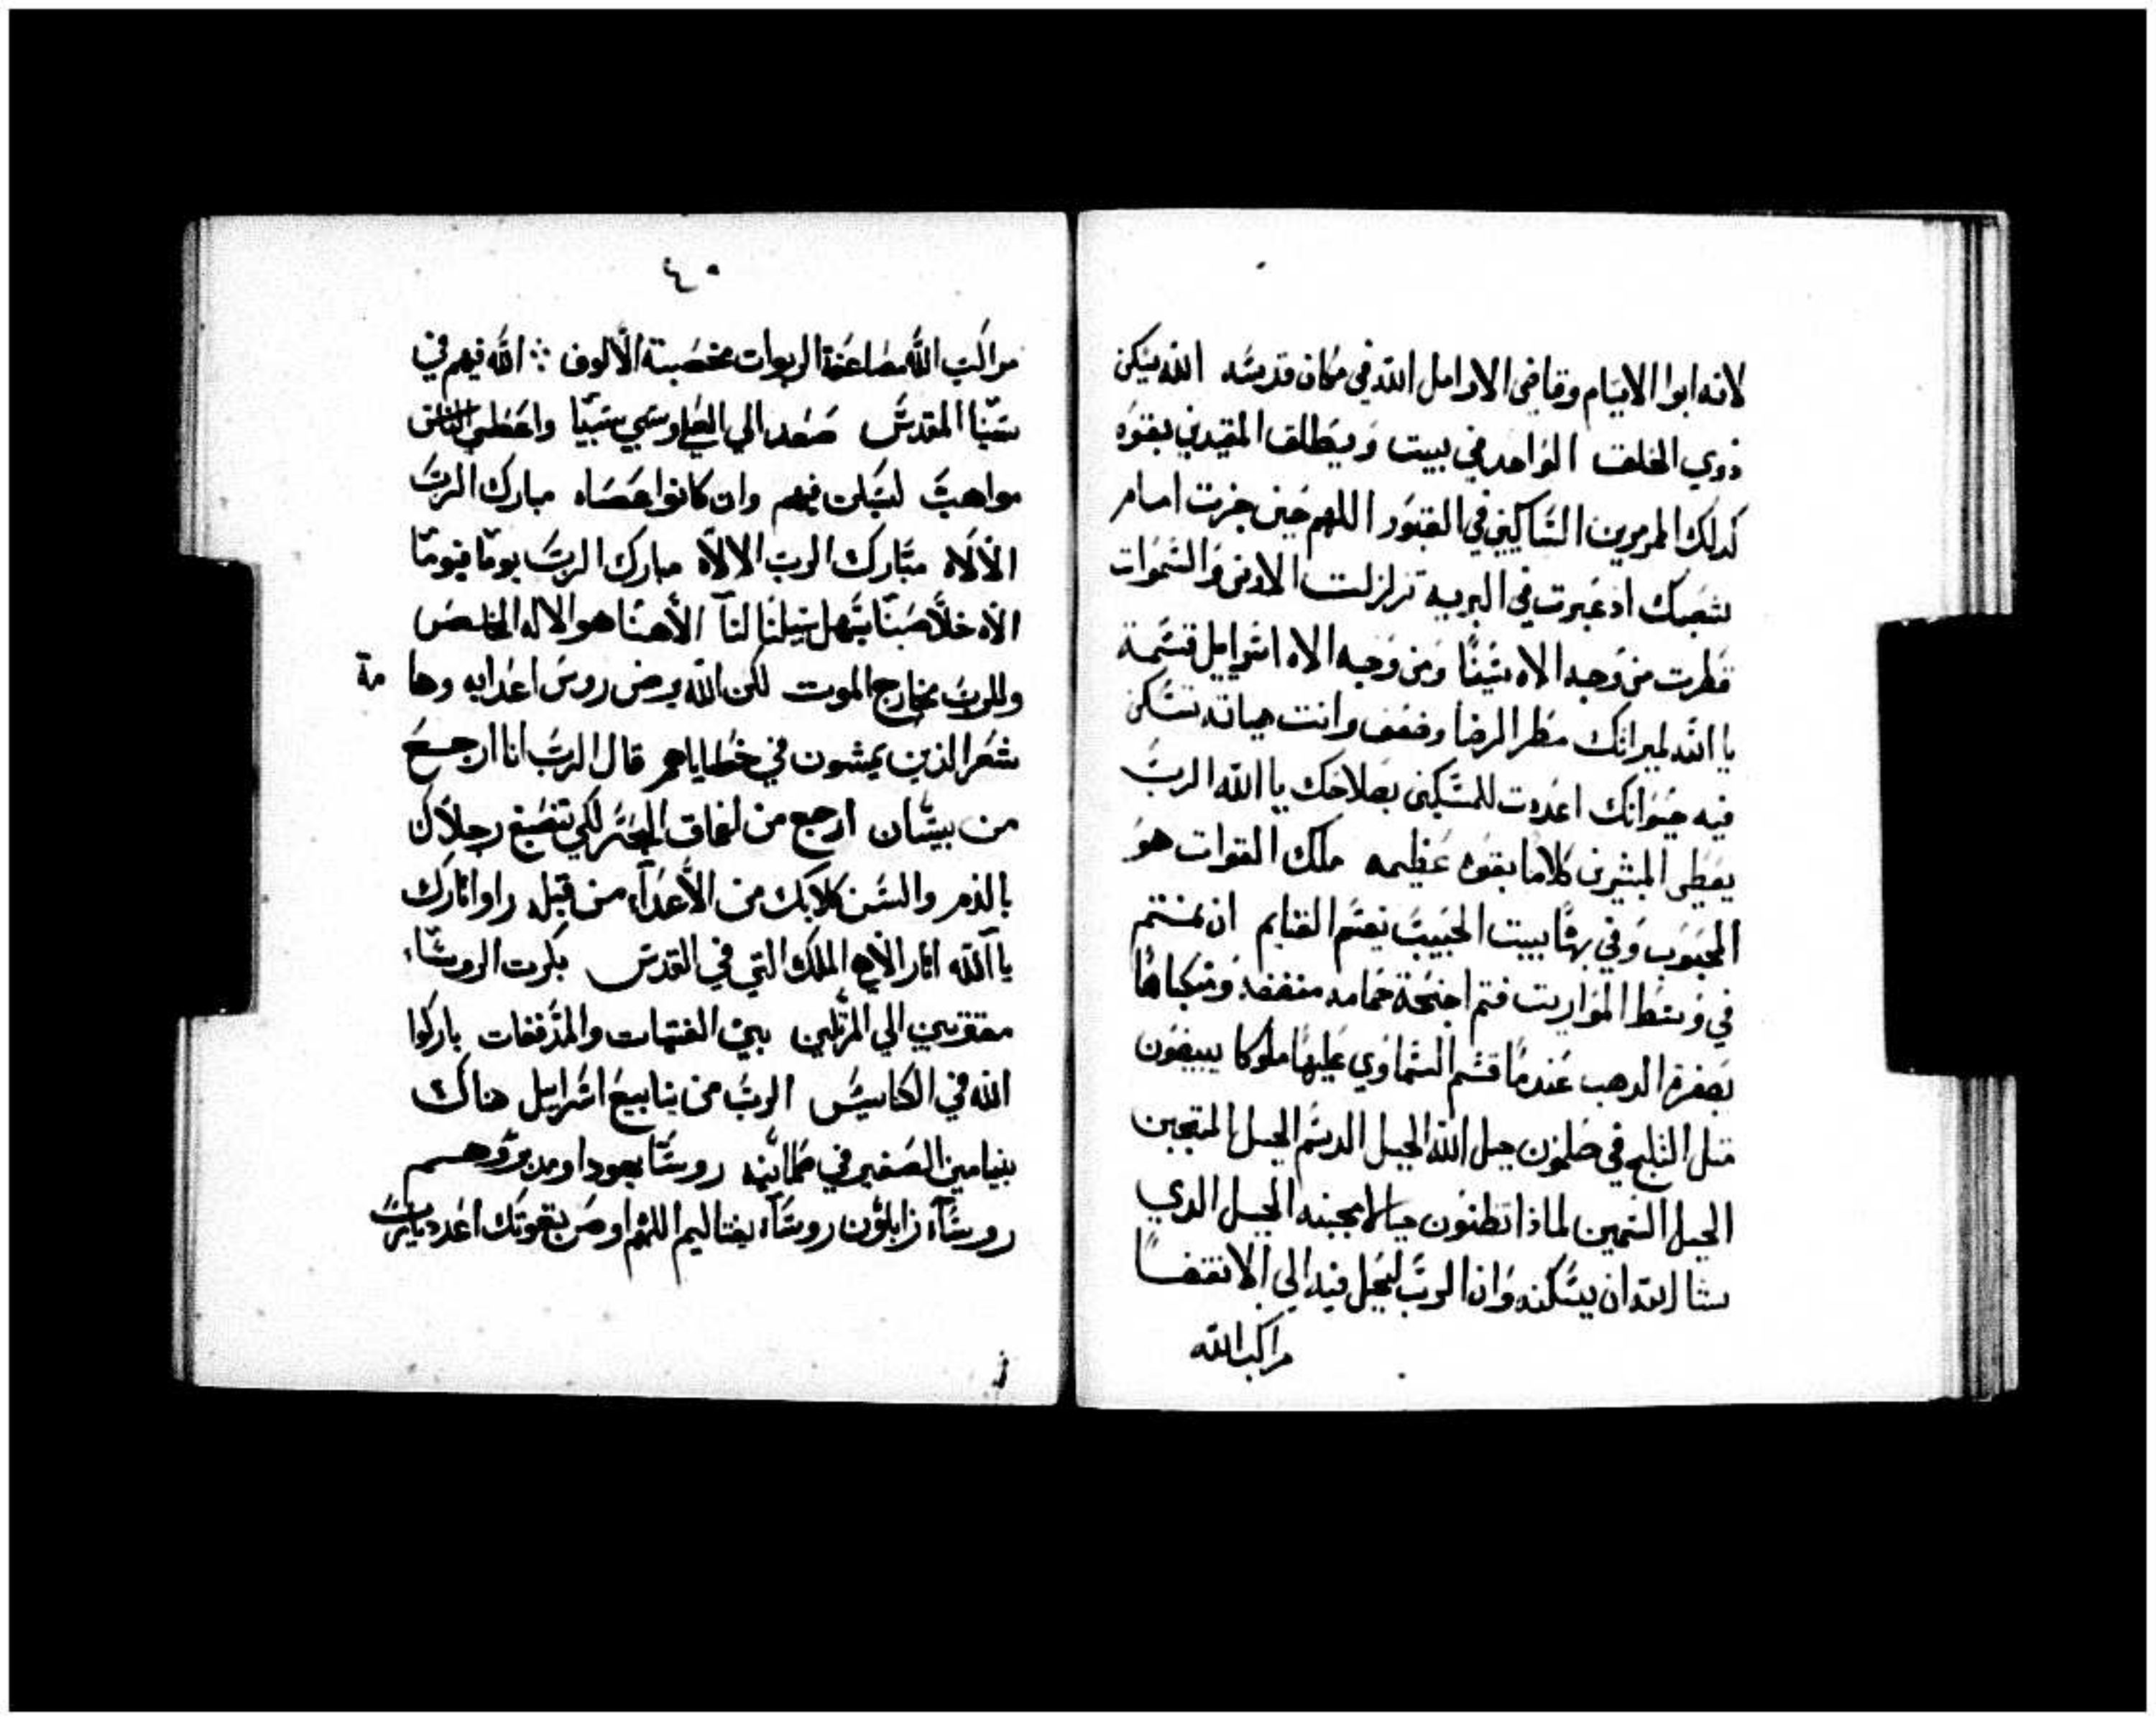 لانه ابوا الايتام وقاضي الارامل الله في مكان قدسه الله يسكن
ذوي الخلق الواحد في بيت ويطلق المقيدين بقوه
كدلك المرمرين الساكنين في القبور اللهم حين جزت امام
شعبك اد عبرت في البريه تزلزلت الارض والسموات
قطرت من وجه الاه سينا ومن وجه الاه اسرايل قسمة
يا الله لميراتك مطر الرضا وضعف وانت هياته تسكن
فيه حيوانك اعددت للمسكين بصلاحك يا الله الرب
يعطي المبشرين كلاما بقوه عظيمه ملك القوات هو
المحبوب وفي بها بيت الحبيب تقسم الغنايم ان نمتم
في وسط المواريت فتم اجنحة حمامه مفضضه ومنكباها
بصفرة الدهب عندما قسم السماوي عليها ملوكا يبيضون
متل التلج في صلمون جبل الله الجبل الدسم الجبل المتجبن
الجبل السمين لماذا تظنون جبالا مجبنه الجبل الدي
سا الله ان يسكنه وان الرب ليحل فيه الي الانقضا
مراكب الله
٤٠
مراكب الله مضاعفة الربوات مخصبة الألوف ∴ الله فيهم في
سينا المقدس صعد الي العلو وسبي سبيا واعطي الناس
مواهب ليسكن فيهم وان كانوا عصاه مبارك الرب
الألاه مبارك الرب الالاه مبارك الرب يوما فيوما
الاه خلاصنا يسهل سبلنا لنا الأهنا هو الاله المخلص
وللرب مخارج الموت لكن الله يرض روس اعدايه وها مة
شعر الذين يمشون في خطاياهم قال الرب انا ارجع
من بيسان ارجع من اعماق البحر لكي تنصبغ رجلاك
بالدم والسن كلابك من الأعدآء من قبله راوا اتارك
يا الله اتار الأهي الملك التي في القدس بكرت الروسآء
مقتربين الي المرتلين بين الفتيات والمدففات باركوا
الله في الكنايس الرب من ينابيع اسرايل هناك
بنيامين الصغير في طمانينه روسا يهودا ومدبروهم
روسآء زابلون روسآء يفتاليم اللهم اوص بقوتك اعدد يارب